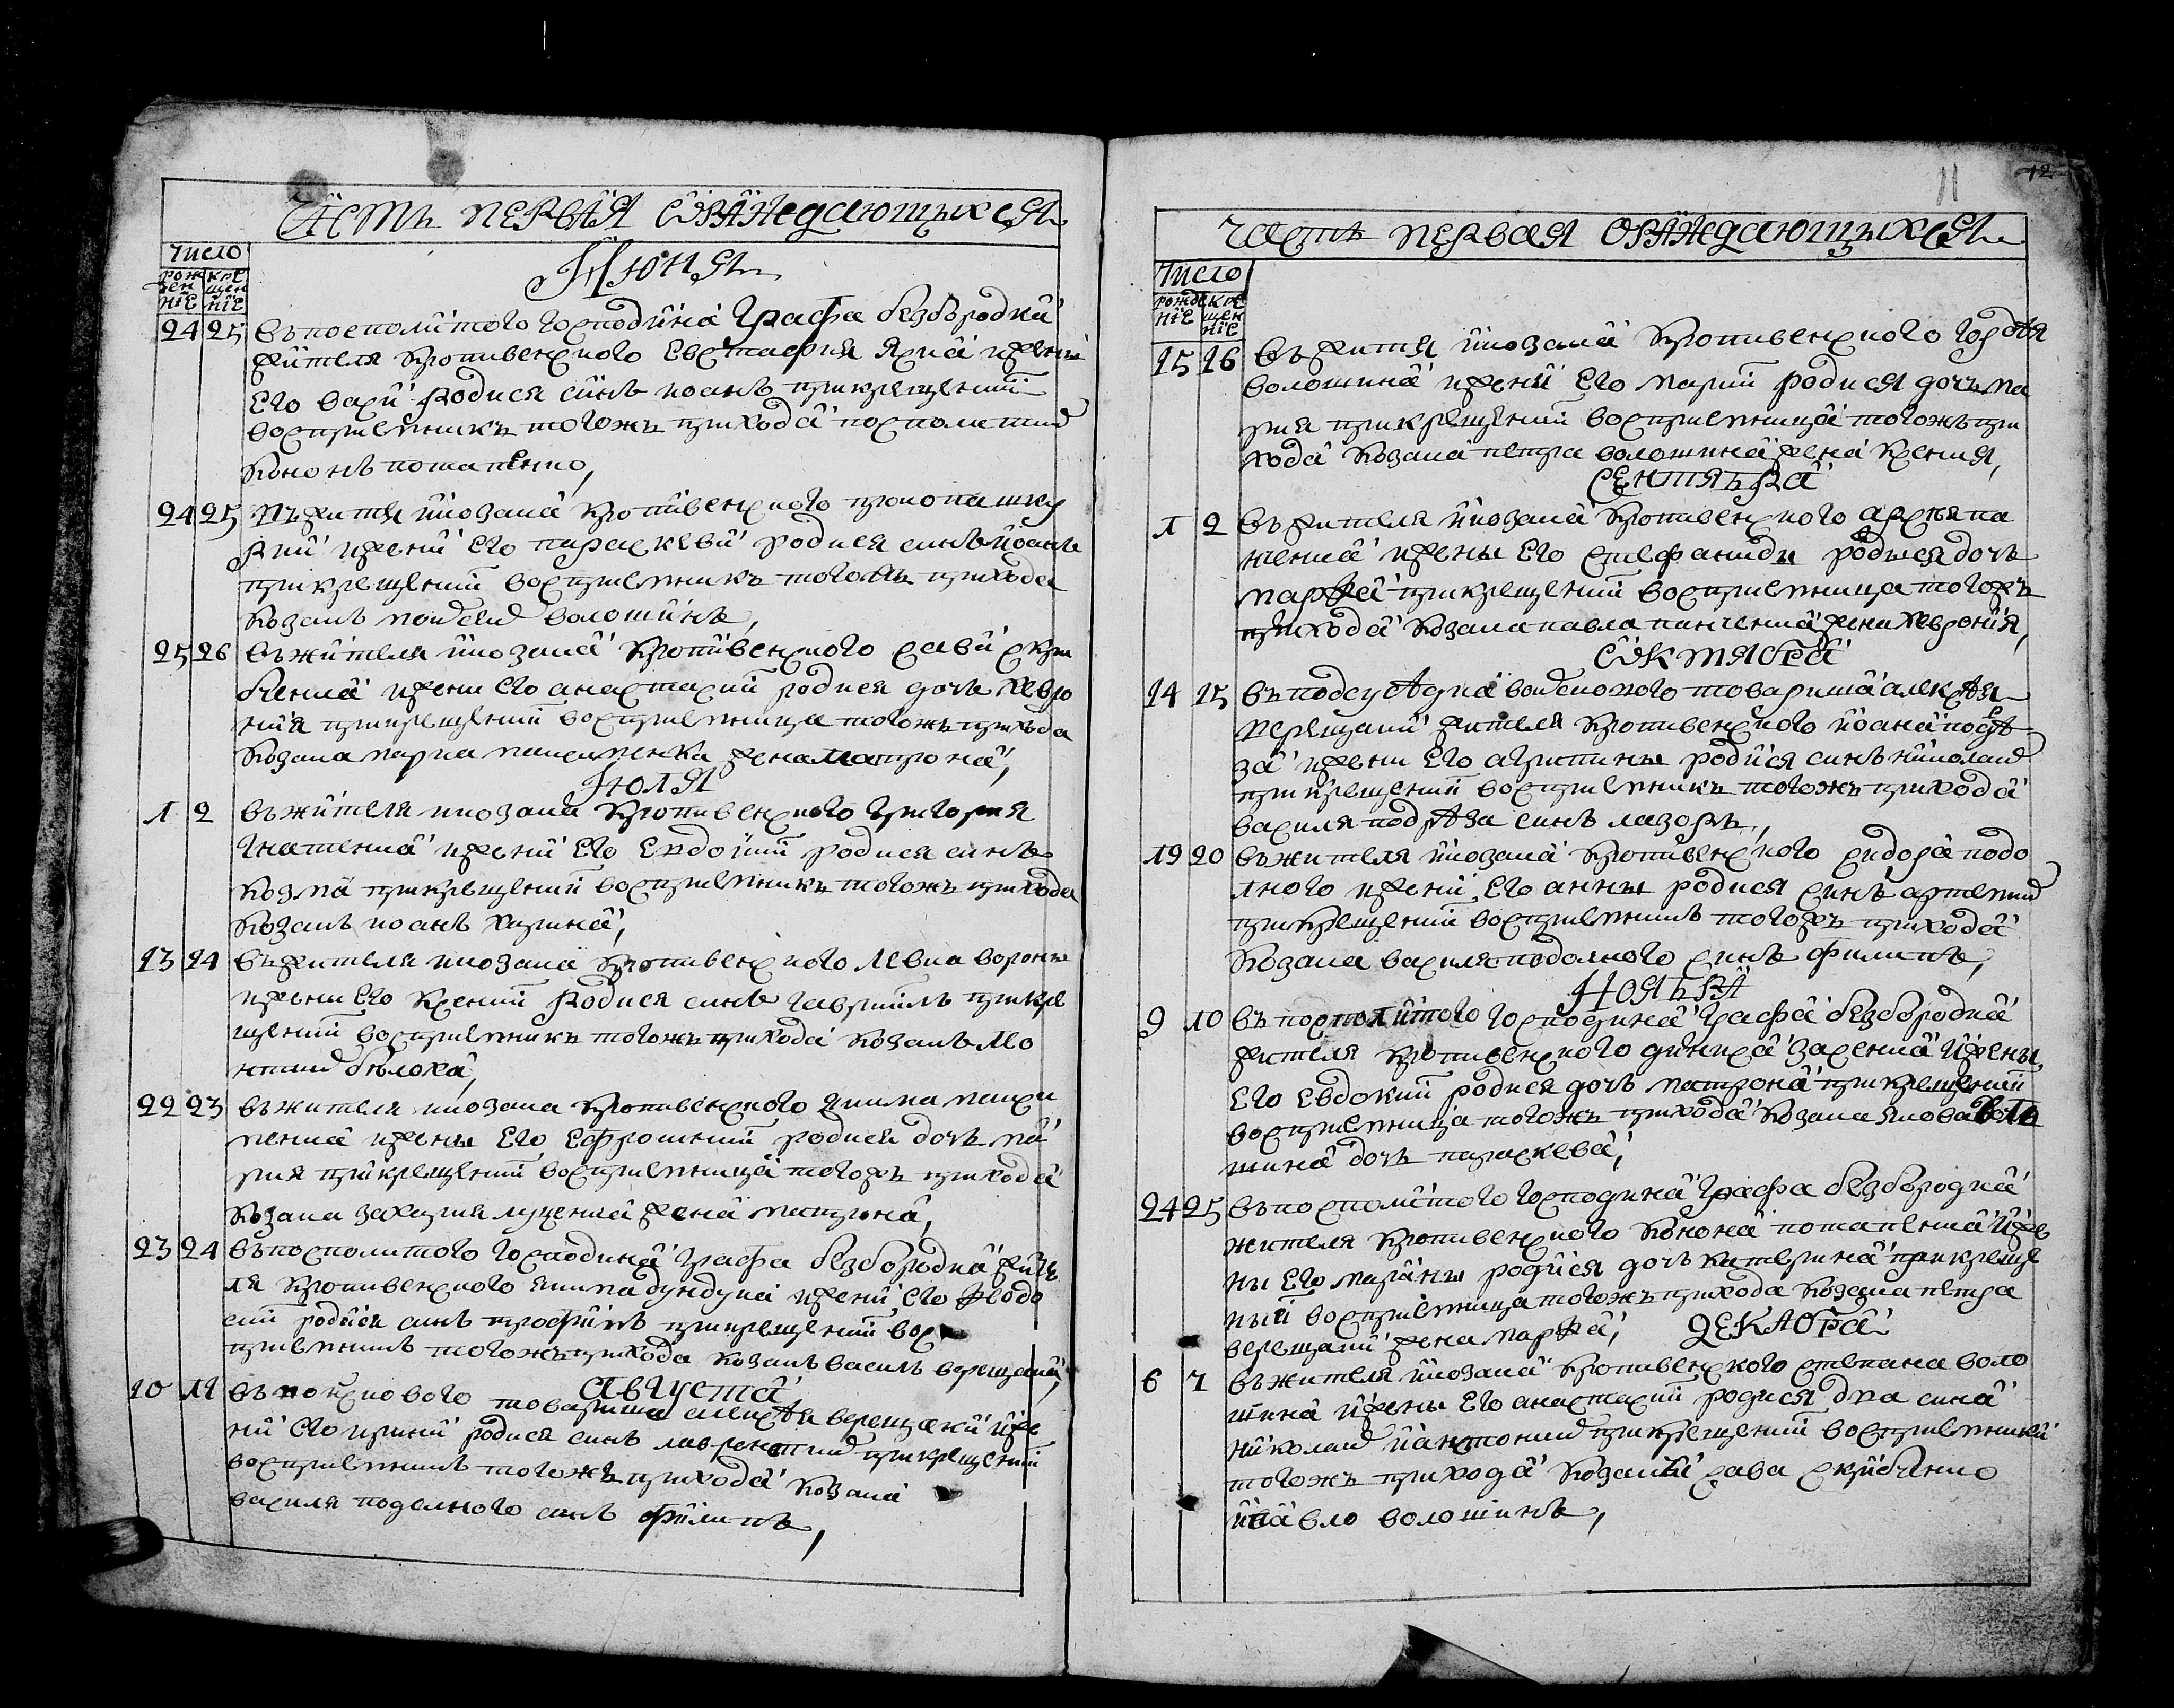 Часть первая ѡраждающихся
Число
рож ден ніе
кре щен ніе
Июня
24 25 въ посполитого господина графа безбородки
жителя кропивенского евстафия яска и жени
его васи родися синъ иоанъ при крещении
восприемникъ тогожъ прихода посполитий
кононъ потапенко,
24 25 въ жителя и козака кропивенского прокопа шку
рки и жени его параскеви родися синъ иоанъ
при крещении восприемникъ тогожъ прихода
козакъ моисей волошинъ,
25 26 въ жителя и козака кропивенского сави скри
бченка и жени его анастасии родися дочь хевро
ния при крещении восприемница тогожъ прихода
козака марка жена матрона,
Июля
1 2 въ жителя и козака кропивенского григория
гнатенка и жени его евдокии родися синъ
козма при крещении восприемникъ тогожъ прихода
козакъ иоанъ
13 14 въ жителя и козака кропивенского левка ворони
и жени его ксении родися синъ гавриилъ при кре
щении восприемникъ тогожъ прихода козакъ лео
нтий белоха,
22 23 въ жителя и козака кропивенского якима макси
менка и жены его ефросинии родися дочь ма
рия при крещении восприемница тогожъ прихода
козака захария луценка жена матрона,
23 24 въ посполитого господина графа безбородка жите
ля кропивенского якима дундука и жени его феодо
сии родися синъ трофимъ при крещении вос
приемникъ тогожъ прихода козакъ василь верещака,
Августа
10 11 въ товариша алексѣя верещаки и же
ни его ирини родися синъ лаврентий при крещении
восприемникъ тогожъ прихода козака
василя подолного синъ филипъ,
11 12
Часть первая ѡраждающихся
Число
рожде ніе
кре щен ніе
15 16 въ жителя и козака кропивенского гордѣя
волошина и жени его марии родися дочь ма
рия при крещении восприемница тогожъ при
хода козака петра волошина жена ксения,
Сентября
1 2 въ жителя и козака кропивенского
и жены его стефаниди родися дочь
марфа при крещении восприемница тогожъ
прихода козака павла панченка жена хеврония,
Ѡктября
14 15 въ подсусѣдка войскового товариша алексѣя
верещаки жителя кропивенского иоана подрѣ
за и жени его агрипины родися синъ николай
при крещении восприемникъ тогожъ прихода
василя подрѣза синъ лазорь,
19 20 въ жителя и козака кропивенского сидора подо
лного и жени его анны родися синъ артемий
при крещении восприемникъ тогожъ прихода
козака василя подолного синъ филипъ,
Ноября
9 10 въ посполитого господина графа безбородка
жителя кропивенского дениса и жены
его евдокии родися дочь матрона при крещении
восприемница тогожъ прихода козака якова воло
шина дочь параскева,
24 25 въ посполитого господина графа безбородка
жителя кропивенского конона потапенка и же
ны его марины родися дочь катерина при креще
нии восприемница тогожъ прихода козака петра
верещаки жена марфа,
Декабра
6 7 въ жителя и козака кропивенского степана воло
шина и жены его анастасии родися два сина
николай и антоний при крещении восприемники
тогожъ прихода козаки сава скрибченко
и павло волошинъ,